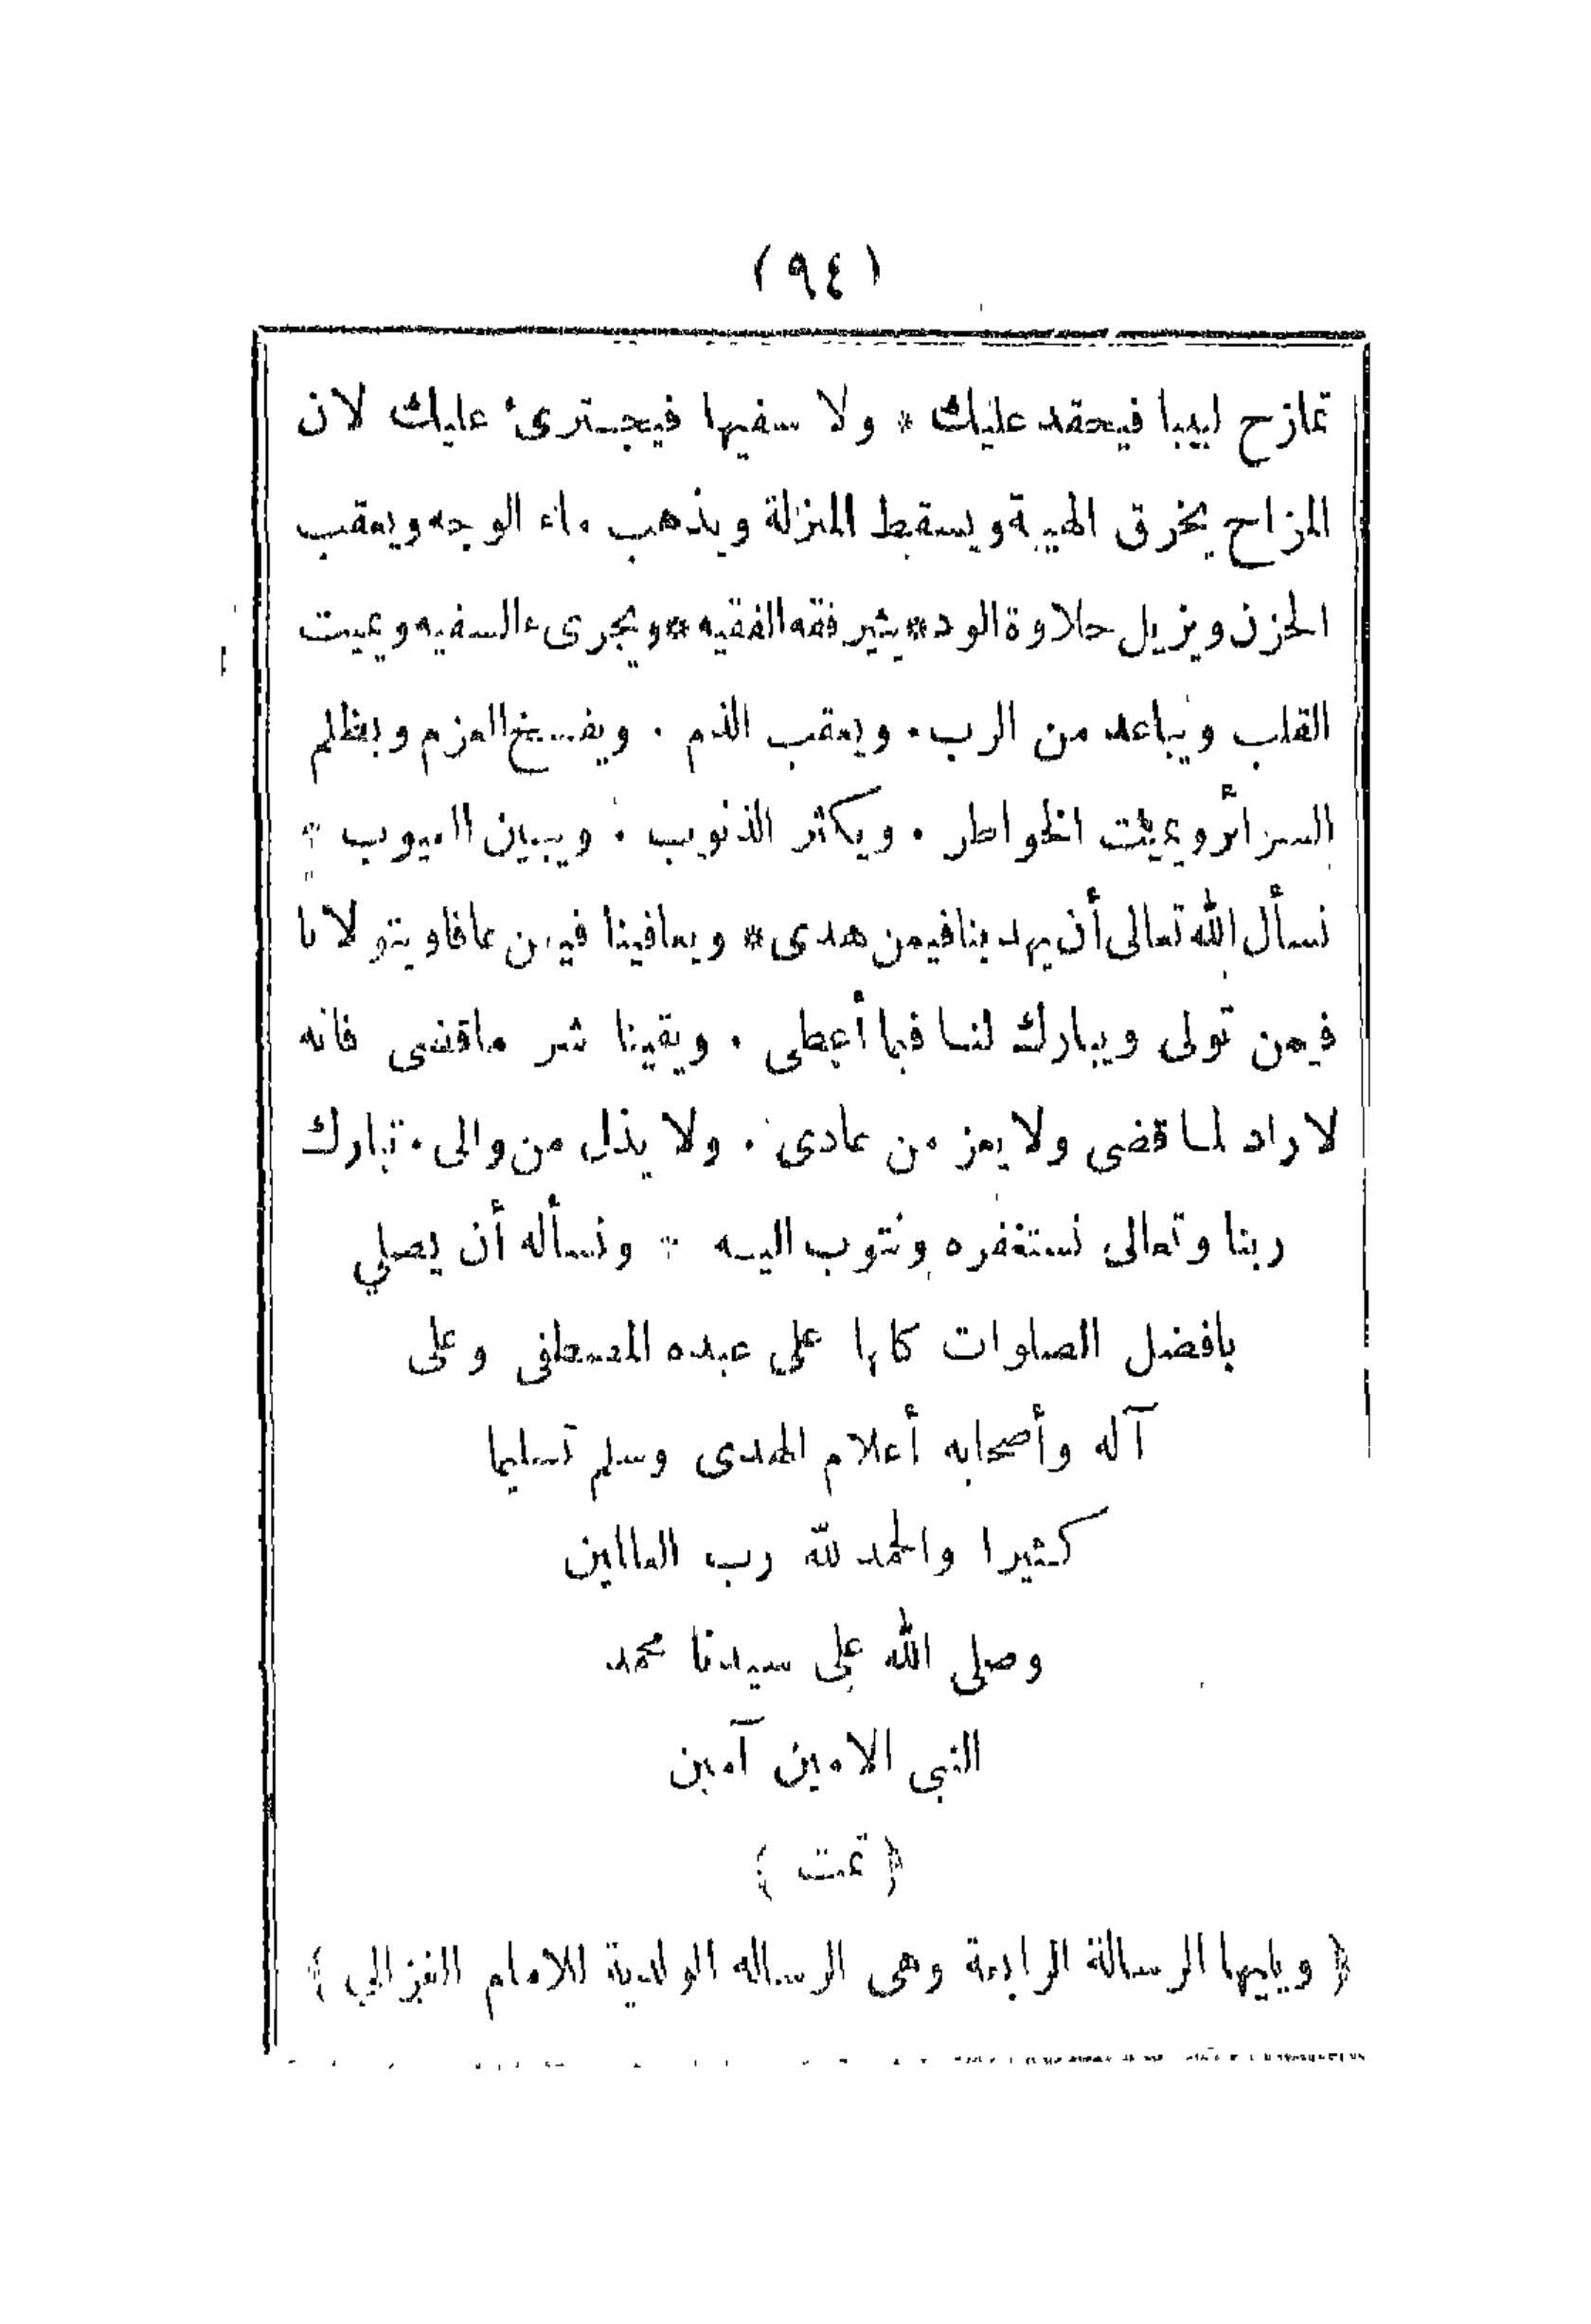 (٩٤)
تمازح لبيبا فيحقد عليك * ولا سفيها فيجترئ عليك لان
المزاح يخرق الهيبة ويسقط المنزلة ويذهب ماء الوجه ويعقب
الحزن ويزيل حلاوة الود * يثير فقه الفقيه * ويجرىء السفيه ويميت
القلب ويباعد من الرب . ويعقب الذم . ويفسخ العزم ويظلم
السرائر ويميت الخواطر . ويكثر الذنوب . ويبين العيوب *
نسأل الله تعالى أن يهدينا فيمن هدى * ويعافينا فيمن عافا ويتولانا
فيمن تولى ويبارك لنا فيما أعطى . ويقينا شر ماقضى فانه
لا راد لما قضى ولا يعز من عادى . ولا يذل من والى . تبارك
ربنا وتعالى نستغفره ونتوب اليه * ونسأله أن يصلي
بافضل الصلوات كلها على عبده المصطفى وعلى
آله وأصحابه أعلام الهدى وسلم تسليما
كثيرا والحمد لله رب العالمين
وصلى الله على سيدنا محمد
النبى الامين آمين
﴿ تمت ﴾
﴿ ويليها الرسالة الرابعة وهى الرساله الولدية للامام الغزالي ﴾